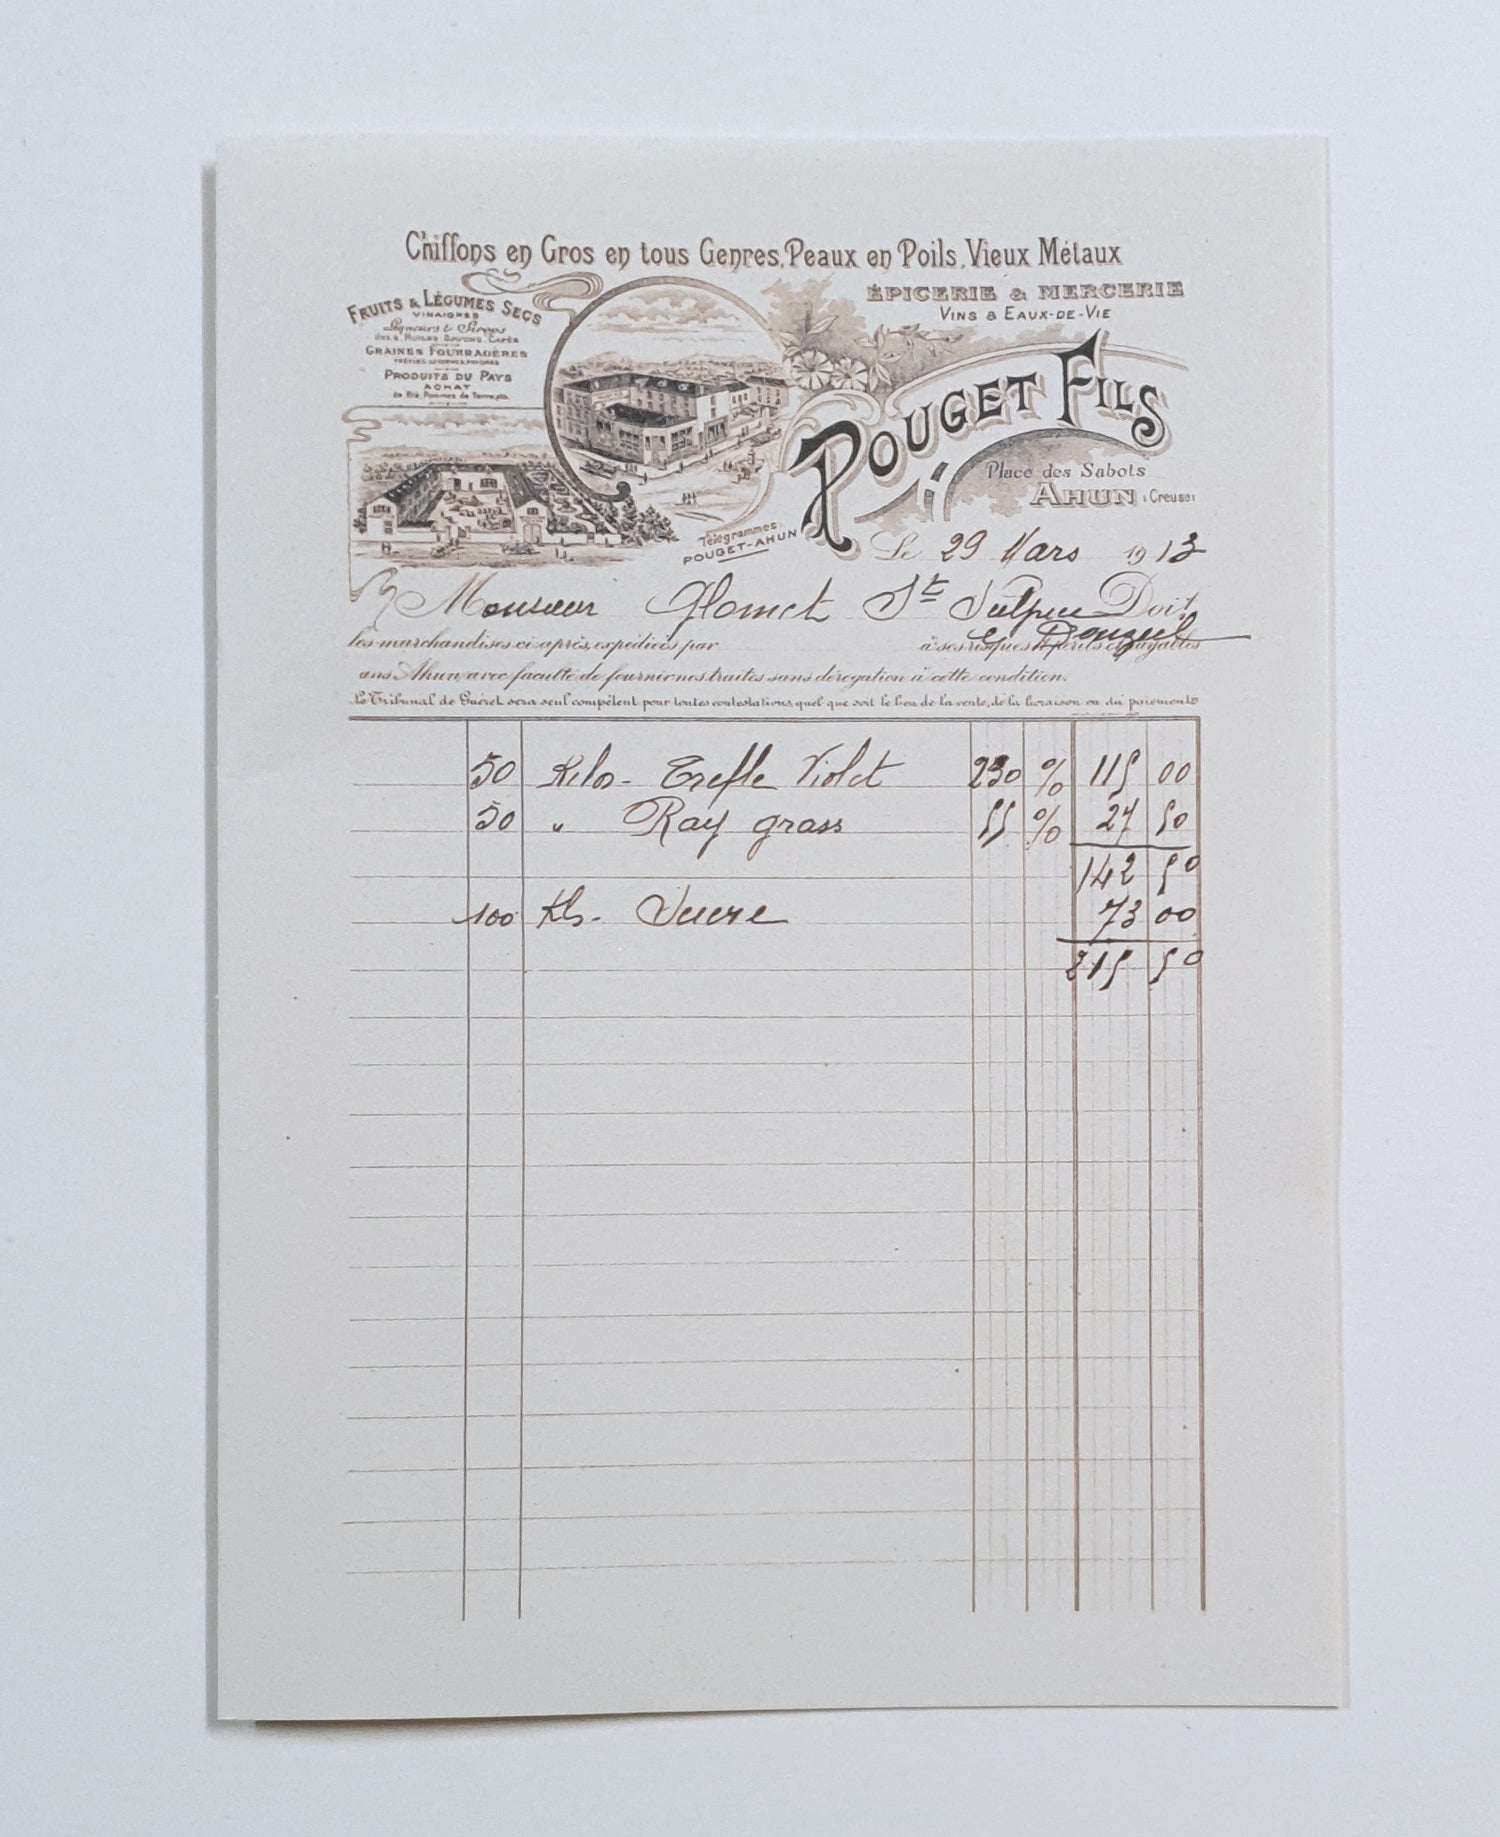 Chiffons en Gros en tous Genres, Peaux en Poils, Vieux Métaux
FRUITS & LÉGUMES SECS
VINAIGRES
Liqueurs & Sirops
Huiles Savons Cafés
GRAINES FOURRAGÈRES
PRODUITS DU PAYS
ACHAT
de Blé, Pommes de Terre, etc.
ÉPICERIE & MERCERIE
VINS & EAUX-DE-VIE
POUGET FILS
Place des Sabots
AHUN (Creuse)
Télégrammes:
POUGET-AHUN
Le 29 Mars 1913
Monsieur Glomet St Sulpice Doit
le Donzeil
les marchandises ci-après, expédiées par à ses risques et périls et payables
dans Ahun, avec faculté de fournir nos traites sans dérogation à cette condition.
Le Tribunal de Guéret sera seul compétent pour toutes contestations quel que soit le lieu de la vente, de la livraison ou du paiement
50 Kilos - Trefle Violet 230 % 115 00
50 " Ray grass 55 % 27 50
142 50
100 Kls - Sucre 73 00
215 50